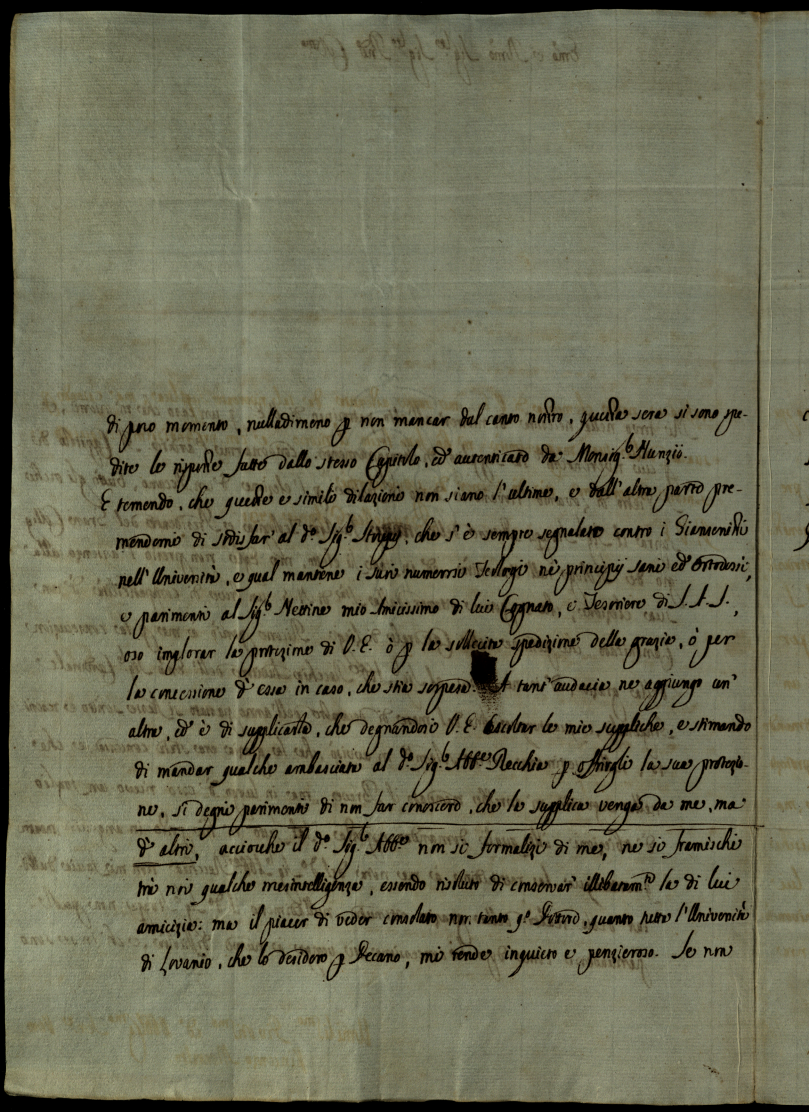 di poco momento, nulladimeno p non mancar dal canto nostro, questa sera si sono spe-
dite le risposte fatte dallo stesso Capitolo, ed autenticate da Monsig.r Nunzio.
E temendo, che queste e simili dilazioni non siano l'ultime, e dall'altra parte pre-
mendomi di sodisfar' al d.o Sig.r che s'è sempre segnalato contro i Giansenisti
nell'Università, e qual mantiene i suoi numerosi Teologi ne principij sani ed Ortodossi,
e parimenti al Sig.r Nettine mio Amicissimo di lui Cognato, e Tesoriere di S.A.S.,
oso implorar la protezione di V.E. ò p la sollecita spedizione della grazia, ò per
la concessione d'essa in caso, che stia sospesa. A tant'audacia ne aggiungo un'
altra, ed è di supplicarla, che degnandosi V.E. ascoltar le mie suppliche, e stimando
di mandar qualche ambasciata al d.o Sig.r Abb.e Recchia p offrirgli la sua protezio-
ne, si degni parimenti di non far conoscere, che la supplica venga da me, ma
d'altri, acciocche il d.o Sig.r Abb.e non si formalizi di me, ne si framischi
trà noi qualche mesintelligenza, essendo risoluto di conservar' illibatam.te la di lui
amicizia: ma il piacer di veder consolato non tanto q.o quanto tutta l'Università
di Lovanio, che lo desidera p Decano, mi rende inquieto e penzieroso. Se non